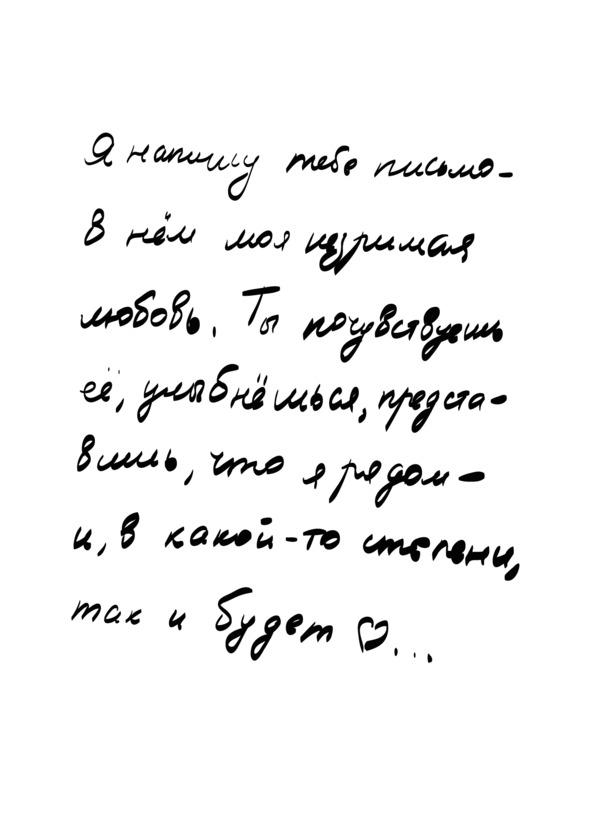 Я напишу тебе письмо -
в нём моя незримая
любовь. Ты почувствуешь
её, улыбнёшься, предста-
вишь, что я рядом -
и, в какой-то степени,
так и будет ♡...